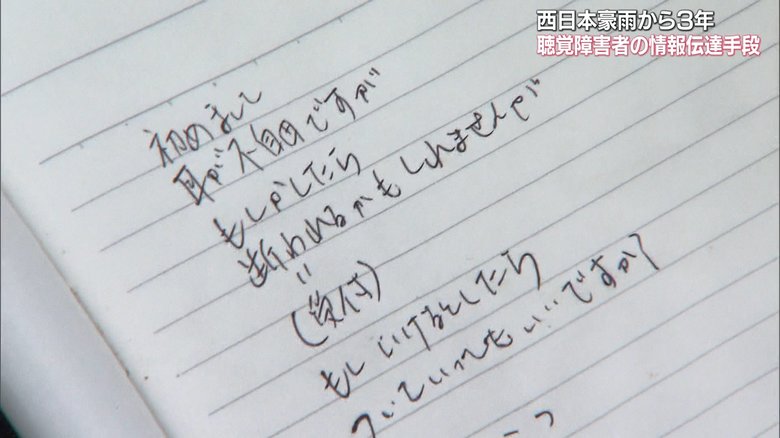 西日本豪雨から3年
聴覚障害者の情報伝達手段
初めまして
耳が不自由ですが
もしかしたら
断われるかもしれませんが
〃
(受付)
もしいけるとしたら
ついていってもいいですか?